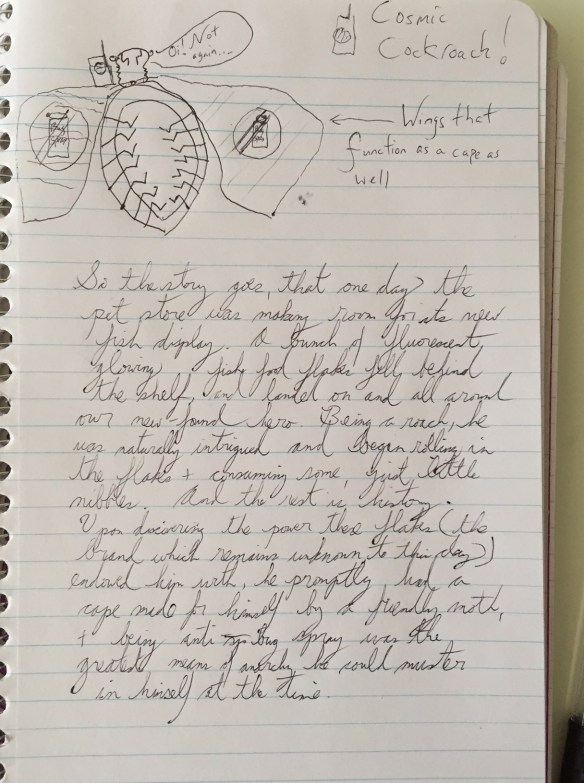 Cosmic
Cockroach!
Oi! Not
again...
Wings that
function as a cape as
well
So the story goes, that one day the
pet store was making room for its new
fish display. A bunch of fluorescent,
glowing fishy food flakes fell behind
the shelf, and landed on and all around
our new found hero. Being a roach, he
was naturally intrigued and began rolling in
the flakes + consuming some, just little
nibbles. And the rest is history.
Upon discovering the power these flakes (the
brand which remains unknown to this day)
endowed him with, he promptly had a
cape made for himself by a friendly moth,
+ being anti bug spray was the
greatest means of anarchy he could muster
in himself at the time.